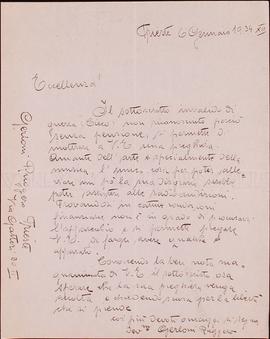 Trieste 6 Gennaio 1934 XII
Eccellenza!
Il sottoscritto invalido di
guerra (cieco) non riconosciuto perciò
senza pensione, si permette di
inoltrare a V.E. una preghiera.
Amante dell'arte e specialmente della
musica, l'unica cosa per poter alle
viare un pò la sua disgrazia sarebbe
poter assistere alle radioaudizioni.
Trovandosi in cattive condizioni
finanziarie non è in grado di procurarsi
l'apparecchio e si permette pregare
V.E. di fargli avere
apparato.
Conoscendo la ben nota ma
gnanimità di V.E. il sottoscritto osa
sperare che la sua preghiera venga
accolta e chiedendo scusa per la libertà
che si prende
coi più devoti omaggi si segna
dev.mo Gerlom Ruggero
Gerlom Ruggero Trieste
Via